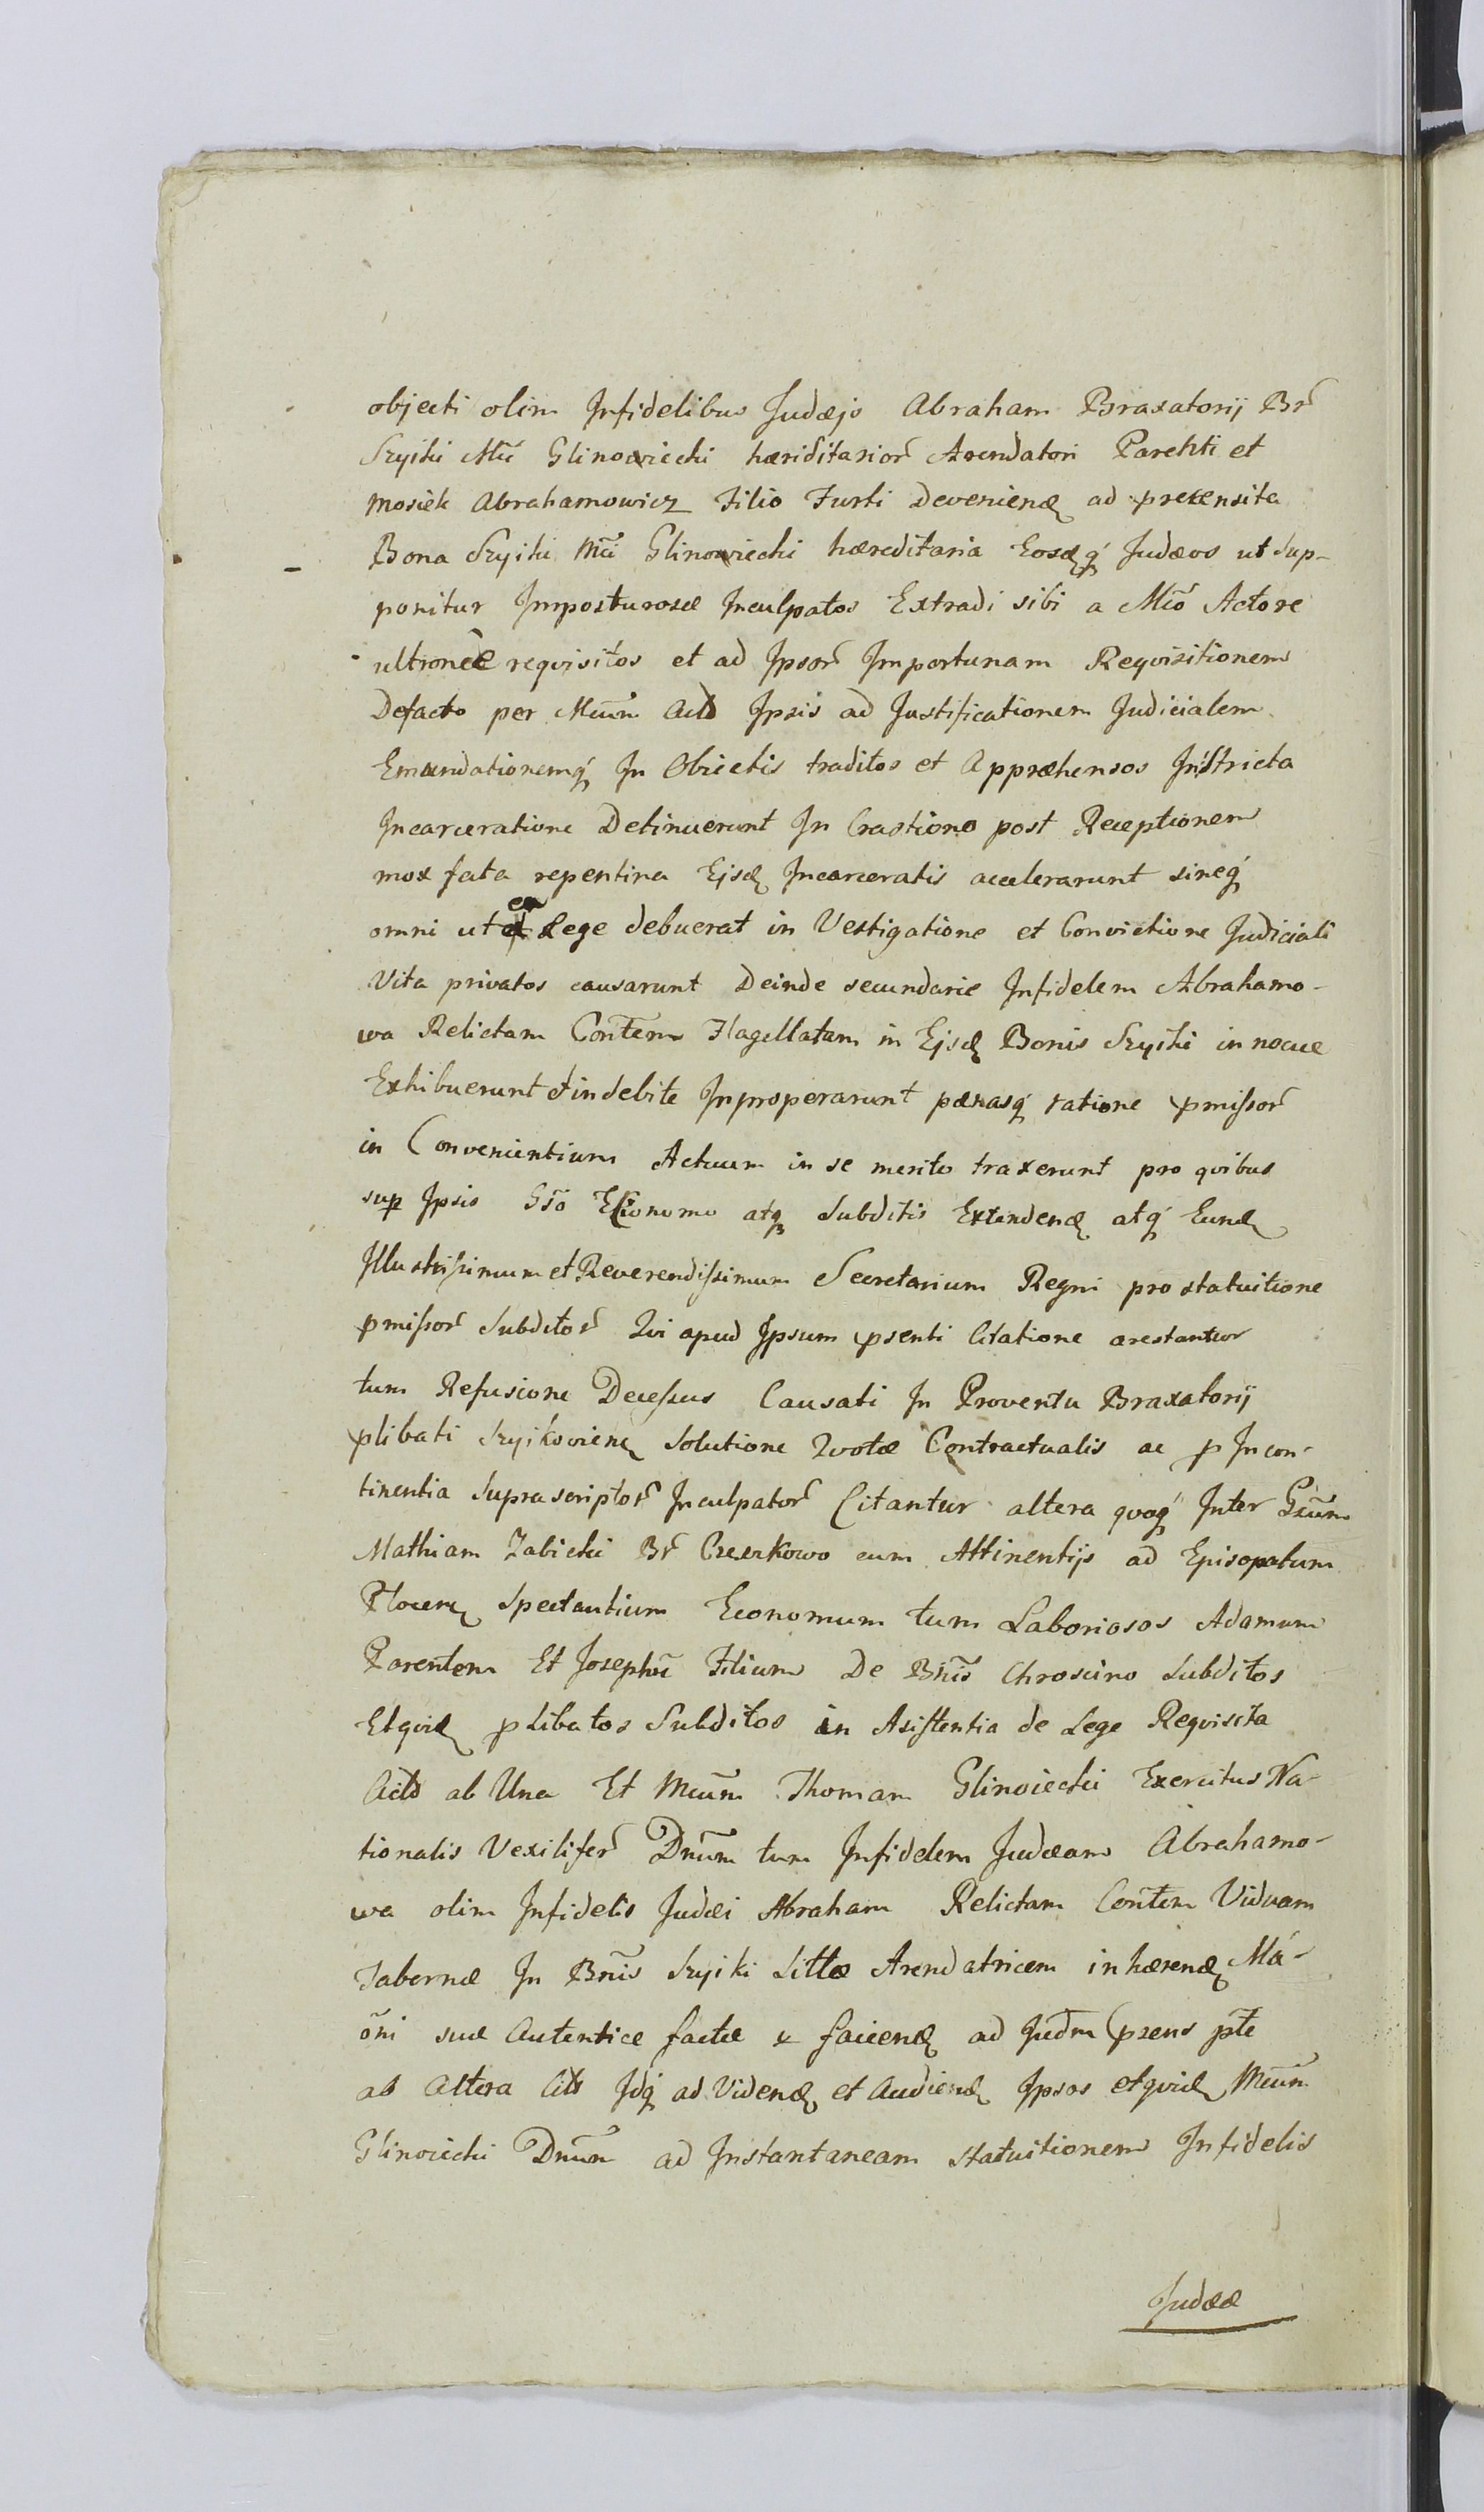 objecti olim Infidelibus Judæjs Abraham Braxatorij Br̃
Szyiki Mci Glinowiecki hæriditarior̃ Arendatori Parenti et
Mosiek Abrahamowicz Filio Furti Devenienđ ad prexensita
Bona Szyiki Mci Glinowiecki hæreditaria Eosdq́ Judæos ut Sup-
ponitur Imposturosæ Inculpatos Extradi sibi a Mco Actore
ultroneæ requisitos et ad Ipsor̃ Importunam Requisitionem
Defacto per Mcum Actō Ipsis ad Justificationem Judicialem
Emundationemq́ In Obiectis traditos et Appræhensos In Stricta
Incarceratione Detinuerunt In Crastiono post Receptionem
mox fata repentina Ejsđ Incarceratis accelerarunt sineq́
omni ut ea Lege debuerat in Vestigatione et Convictione Judiciali
Vita privatos causarunt Deinde secundarie Infidelem Abrahamo-
wa Relictam Conten̄ Flagellatam in Ejsđ Bonis Szyiki in nocue
Exhibuerunt et indebite Inproperarunt pænasq́ ratione pmissor̃
in Convenientium Actuum in se merito traxerunt pro qvibus
sup Ipsis Gso Economo atq́ Subditis Extendenđ atq́ Eunđ
Illustrissimum et Reverendissimum Secretarium Regni pro statuitione
pmissor̃ Subditor̃ Qvi apud Ipsum psenti Citatione arestantur
tum Refusione Decessus Causati In Proventu Braxatorij
plibati Szyikovienẽ Solutione Qvotæ Contractualis ac p Incon-
tinentia Suprascriptor̃ Inculpator̃ Citantur altera qvoq́ Inter Gsum
Mathiam Zabicki Br̃ Czerkowo cum Attinentijs ad Episopatum
Plocen̄ Spectantium Economum tum Laboriosos Adamum
Parentem Et Josephũ Filium De Bnis̄ Chroscino Subditos
Etqvid plibatos Subditos in Asistentia de Lege Reqvisita
Actō ab Una Et Mcum Thomam Glinoiecki Exercitus Na-
tionalis Vexilifer̃ Dnum tum Infidelem Judæam Abrahamo-
wa olim Infidelis Judæi Abraham Relictam Conten̄ Viduam
Tabernæ In Bnis̄ Szyiki Sittæ Arendatricem inhærenđ Ma-
ōni suæ Autentice factæ & facienđ ad Judm psens pte
ab Altera Cits Idq́ ad Videnđ et Audienđ Ipsos etqvid Mcum
Glinoiecki Dnum ad Instantaneam statuitionem Infidelis
Judææ